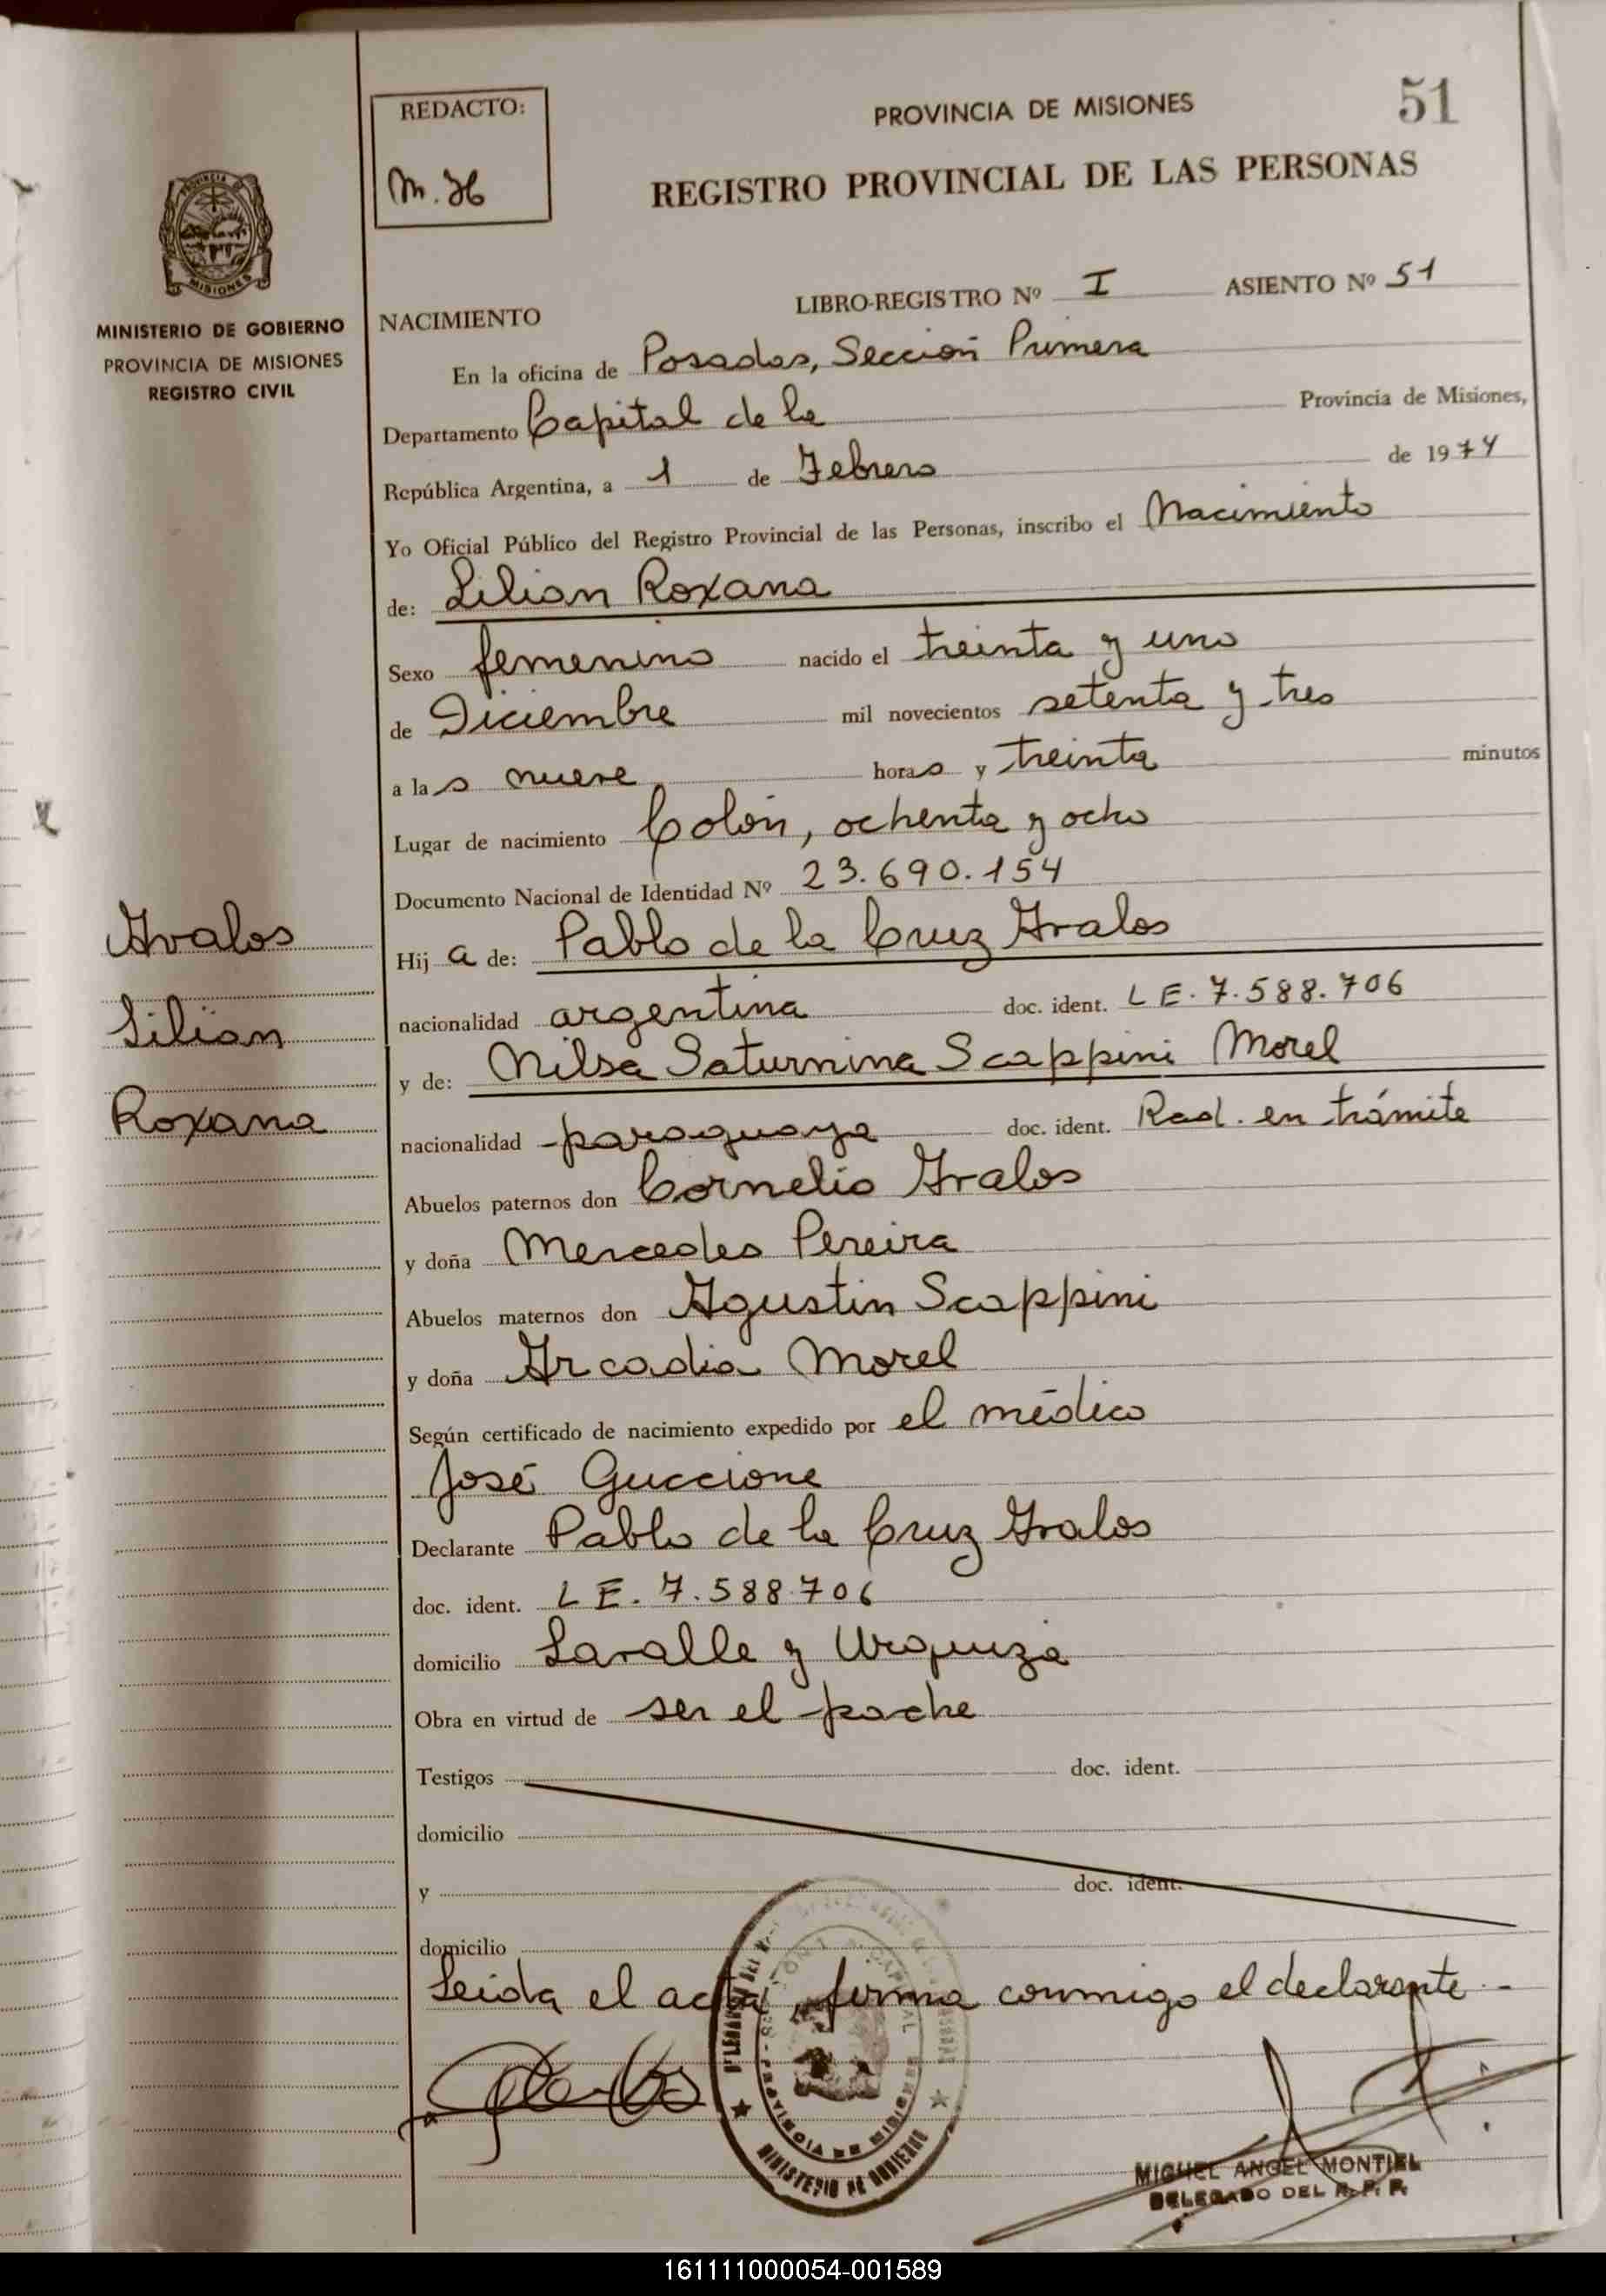 51
REDACTO:
M. H
PROVINCIA DE MISIONES
REGISTRO PROVINCIAL DE LAS PERSONAS
PROVINCIA DE
MISIONES
MINISTERIO DE GOBIERNO
PROVINCIA DE MISIONES
REGISTRO CIVIL
NACIMIENTO LIBRO-REGISTRO Nº I ASIENTO Nº 51
En la oficina de Posadas, Sección Primera
Departamento Capital de la Provincia de Misiones,
República Argentina, a 1 de Febrero de 1974
Yo Oficial Público del Registro Provincial de las Personas, inscribo el Nacimiento
de: Lilian Roxana
Sexo femenino nacido el treinta y uno
de Diciembre mil novecientos setenta y tres
a las nueve horas y treinta minutos
Lugar de nacimiento Colón, ochenta y ocho
Documento Nacional de Identidad Nº 23.690.154
Hija de: Pablo de la Cruz Avalos
nacionalidad argentina doc. ident. LE. 7.588.706
y de: Nilsa Saturnina Scappini Morel
nacionalidad paraguaya doc. ident. Rad. en trámite
Abuelos paternos don Cornelio Avalos
y doña Mercedes Pereira
Abuelos maternos don Agustin Scappini
y doña Arcadia Morel
Según certificado de nacimiento expedido por el médico
José Guccione
Declarante Pablo de la Cruz Avalos
doc. ident. LE. 7.588.706
domicilio Lavalle y Urquiza
Obra en virtud de ser el padre
Testigos doc. ident.
domicilio
y doc. ident.
domicilio
Leida el acta, firma conmigo el declarante -
Avalos
Lilian
Roxana
PROVINCIA DE MISIONES
MINISTERIO DE GOBIERNO
MIGUEL ANGEL MONTIEL
DELEGADO DEL R. P. P.
161111000054-001589